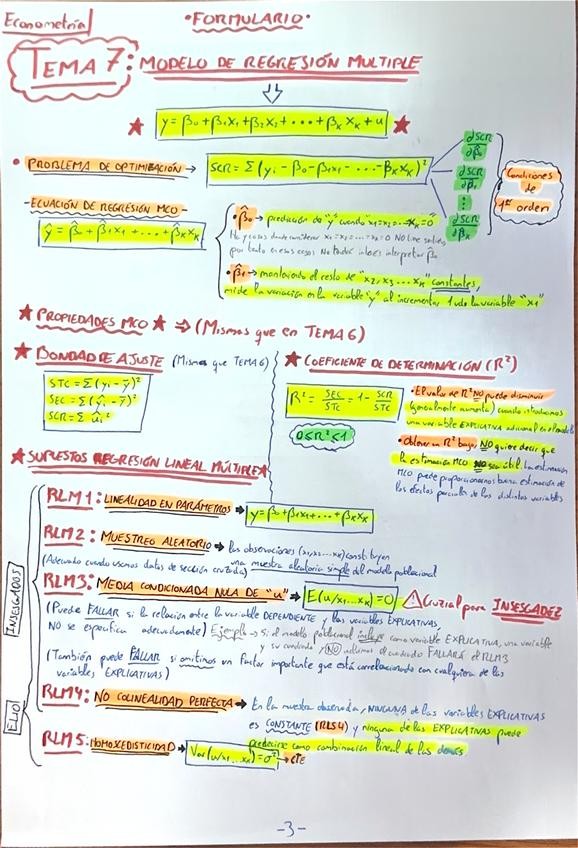 Econometría
• FORMULARIO •
TEMA 7: MODELO DE REGRESIÓN MULTIPLE
y = β0 + β1x1 + β2x2 + ... + βKxK + u
• PROBLEMA DE OPTIMIZACIÓN → SCR = Σ (yi - β0 - β1x1 - ... - βKxK)²
∂SCR
∂β0
∂SCR
∂β1
⋮
∂SCR
∂βK
Condiciones
de
1er orden
- ECUACIÓN DE REGRESIÓN MCO -
ŷ = β̂0 + β̂1x1 + ... + β̂KxK
• β̂0 → predicción de "y" cuando "x1=x2=...=xK=0"
por tanto en esos casos no tendrá interés interpretar β̂0
• β̂1 → manteniendo el resto de "x2, x3 ... xK" constantes,
mide la variación en la variable "y" al incrementar 1 ud la variable "x1"
★ PROPIEDADES MCO ★ ⇒ (Mismas que en TEMA 6)
★ BONDAD DE AJUSTE (Mismas que TEMA 6)
STC = Σ (yi - ȳ)²
SEC = Σ (ŷi - ȳ)²
SCR = Σ ûi²
★ COEFICIENTE DE DETERMINACIÓN (R²)
R² = SEC/STC = 1 - SCR/STC
0 ≤ R² ≤ 1
• El valor de R² NO puede disminuir
(generalmente aumenta) cuando introducimos
una variable EXPLICATIVA adicional en el modelo
• Obtener un R² bajo, NO quiere decir que
la estimación MCO NO sea útil. La estimación
MCO puede proporcionarnos buena estimación de
los efectos parciales de las distintas variables
★ SUPUESTOS REGRESIÓN LINEAL MÚLTIPLE ★
INSESGADOS
ELIO
RLM1: LINEALIDAD EN PARÁMETROS → y = β0 + β1x1 + ... + βKxK
RLM2: MUESTREO ALEATORIO → las observaciones (x1, x2 ... xK) constituyen
una muestra aleatoria simple del modelo poblacional
(Adecuado cuando usemos datos de sección cruzada)
RLM3: MEDIA CONDICIONADA NULA DE "u" → E(u/x1...xK) = 0 ⚠ Crucial para INSESGADEZ
(Puede FALLAR si la relación entre la variable DEPENDIENTE y las variables EXPLICATIVAS,
NO se especifica adecuadamente) Ejemplo → Si el modelo poblacional incluye como variable EXPLICATIVA, una variable
y su cuadrado, y NO incluimos el cuadrado FALLARÁ el RLM3
(También puede FALLAR si omitimos un factor importante que está correlacionado con cualquiera de las
variables EXPLICATIVAS)
RLM4: NO COLINEALIDAD PERFECTA → En la muestra observada, NINGUNA de las variables EXPLICATIVAS
es CONSTANTE (RLS4) y ninguna de las EXPLICATIVAS puede
predecirse como combinación lineal de las demás.
RLM5: HOMOSCEDISTICIDAD → Var(u/x1...xK) = σ² → CTE
-3-